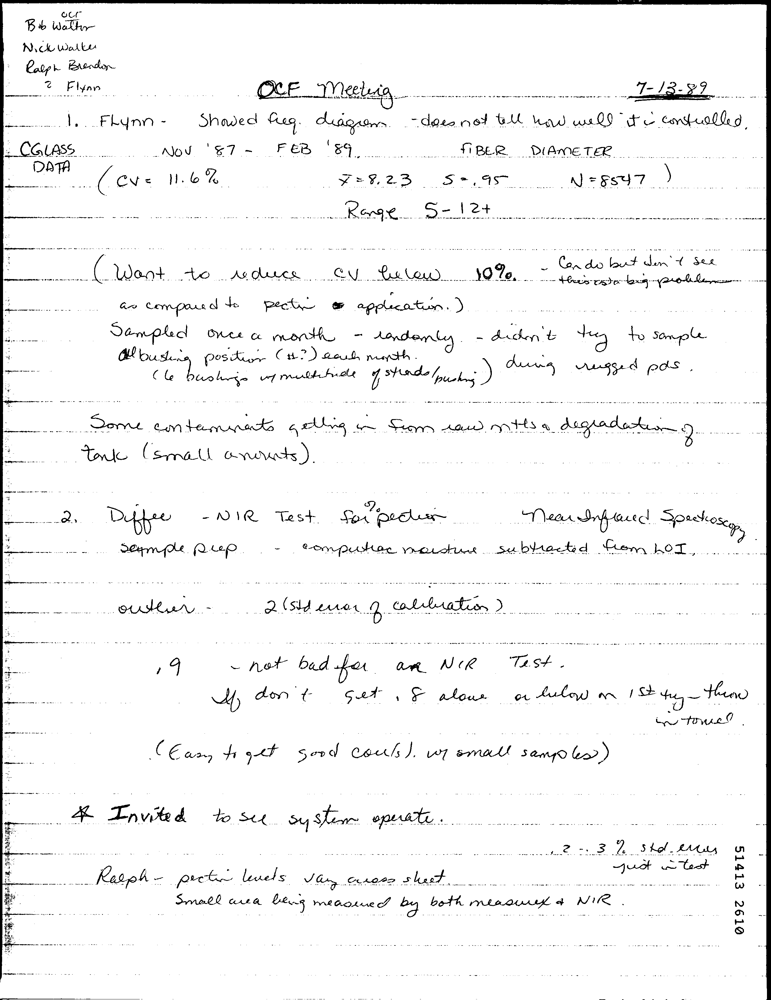 OCF
Bob Walther
Nick Walker
Ralph Brendon
? Flynn
OCF Meeting 7-13-89
1. Flynn - Showed freq. diagram - does not tell how well it is controlled.
CGLASS DATA
NOV '87 - FEB '89 FIBER DIAMETER
(CV = 11.6% x̄ = 8.23 S = .95 N = 8547)
Range 5-12+
(Want to reduce CV below 10%. - Can do but don't see this as a big problem
as compared to pectin application.)
Sampled once a month - randomly. - didn't try to sample
all bushing position (#?) each month.
(6 bushings w/ multitude of strands/bushing) during rugged pds.
Some contaminants getting in from raw mtls & degradation of
tank (small amounts).
2. Diffee - NIR Test for % pectin Near Infrared Spectroscopy
sample prep - moisture subtracted from LOI.
outlier - 2 (std error of calibration)
.9 - not bad for an NIR Test.
If don't get .8 above or below on 1st try - throw
in towel.
(Easy to get good w/ small samples)
* Invited to see system operate.
.2 - .3 % std. error
just in test
Ralph - pectin levels vary across sheet.
Small area being measured by both measurex & NIR.
51413 2610